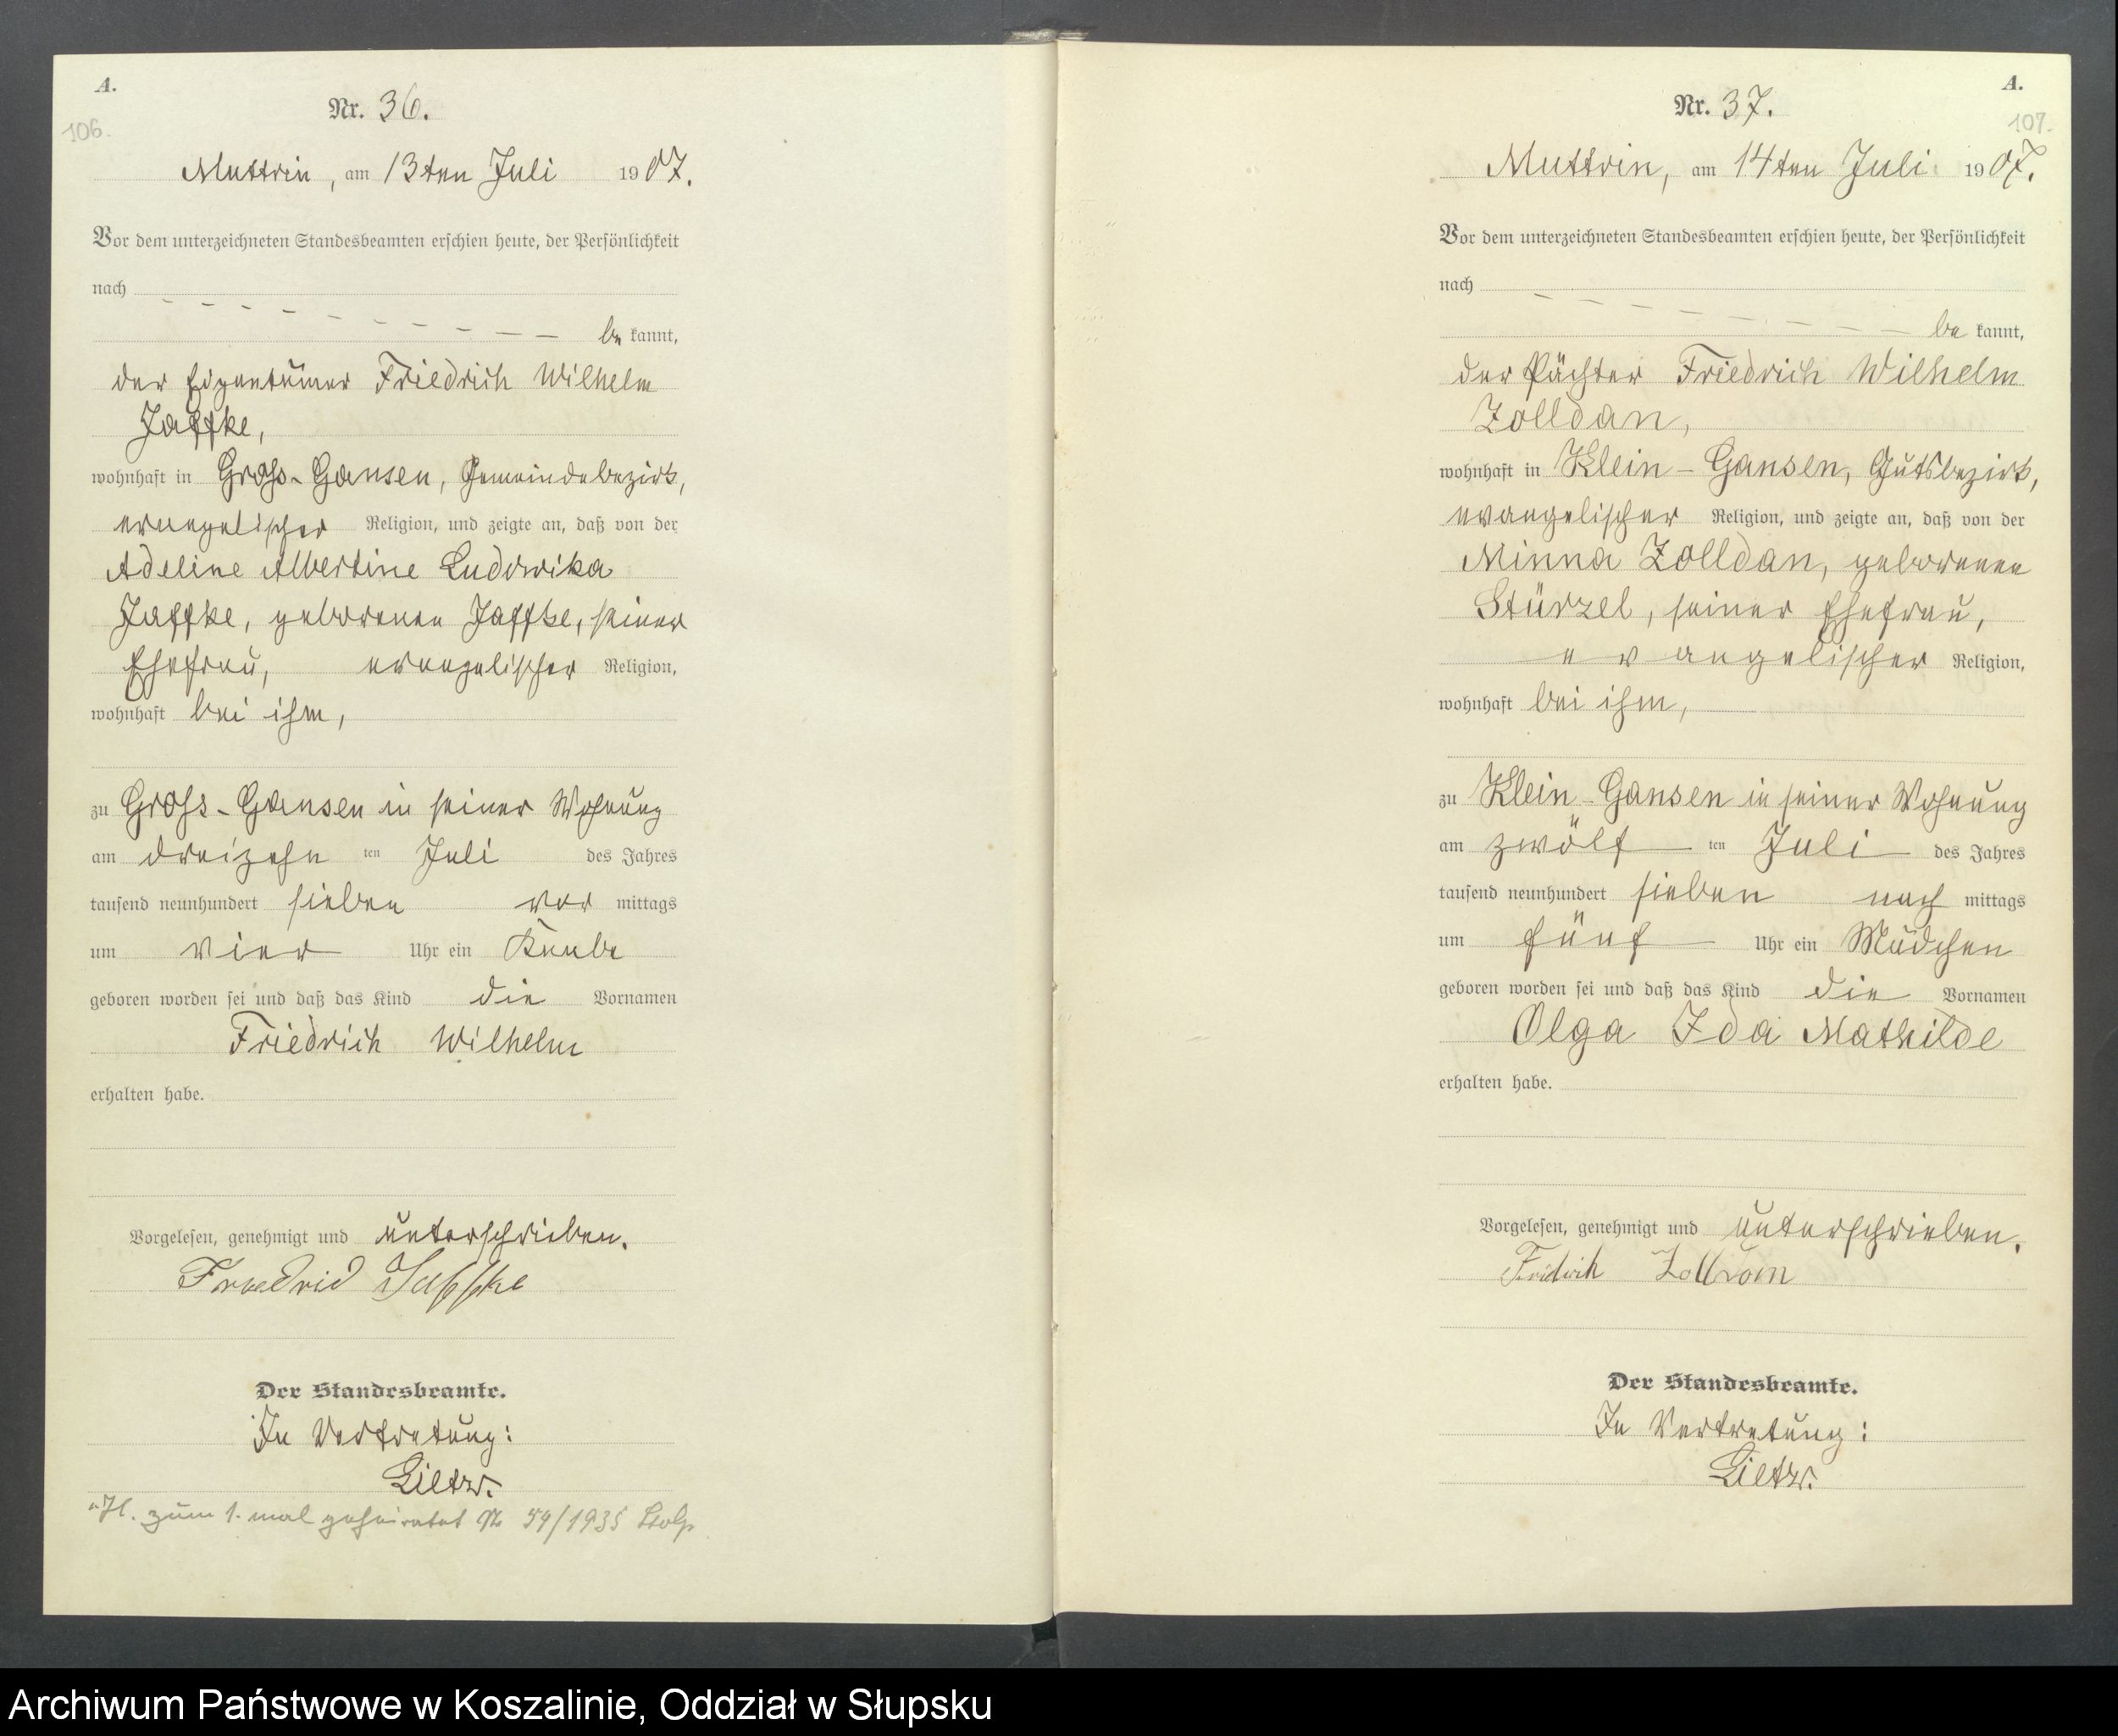 A.
106.
Nr. 36.
Muttrin, am 13ten Juli 1907.
Vor dem unterzeichneten Standesbeamten erschien heute, der Persönlichkeit
nach
be kannt,
der Eigentümer Friedrich Wilhelm
Jaffke,
wohnhaft in Gross-Gansen, Gemeindebezirk,
evangelischer Religion, und zeigte an, daß von der
Adeline Albertine Ludowika
Jaffke, geborenen Jaffke, seiner
Ehefrau, evangelischer Religion,
wohnhaft bei ihm,
zu Gross-Gansen in seiner Wohnung
am dreizehn ten Juli des Jahres
tausend neunhundert sieben vor mittags
um vier Uhr ein Knabe
geboren worden sei und daß das Kind die Vornamen
Friedrich Wilhelm
erhalten habe.
Vorgelesen, genehmigt und unterschrieben.
Friedrich Jaffke
Der Standesbeamte.
In Vertretung:
Lietzw.
zum 1. mal geheiratet Nr 59/1935 Stolp
A.
107.
Nr. 37.
Muttrin, am 14ten Juli 1907.
Vor dem unterzeichneten Standesbeamten erschien heute, der Persönlichkeit
nach
be kannt,
der Pächter Friedrich Wilhelm
Zolldan,
wohnhaft in Klein-Gansen, Gutsbezirk,
evangelischer Religion, und zeigte an, daß von der
Minna Zolldan, geborenen
Stürzel, seiner Ehefrau,
evangelischer Religion,
wohnhaft bei ihm,
zu Klein-Gansen in seiner Wohnung
am zwölf ten Juli des Jahres
tausend neunhundert sieben nach mittags
um fünf Uhr ein Mädchen
geboren worden sei und daß das Kind die Vornamen
Olga Ida Mathilde
erhalten habe.
Vorgelesen, genehmigt und unterschrieben.
Fridrich Zolldan
Der Standesbeamte.
In Vertretung:
Lietzw.
Archiwum Państwowe w Koszalinie, Oddział w Słupsku